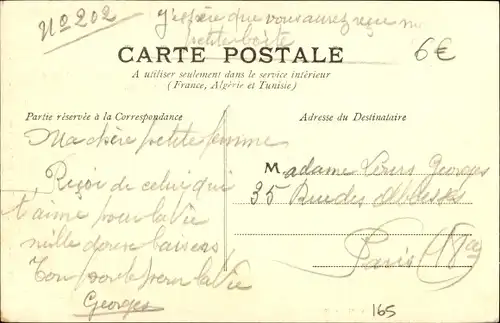 No 202
J'espère que vous aurez reçu ma
petite boite
6€
CARTE POSTALE
A utiliser seulement dans le service intérieur
(France, Algérie et Tunisie)
Partie réservée à la Correspondance
Adresse du Destinataire
Ma chère petite femme
Reçoi de celui qui
t'aime pour la Vie
mille doux baisers
Ton pour la Vie
Georges
Madame Louis Georges
35 Rue des
Paris
165